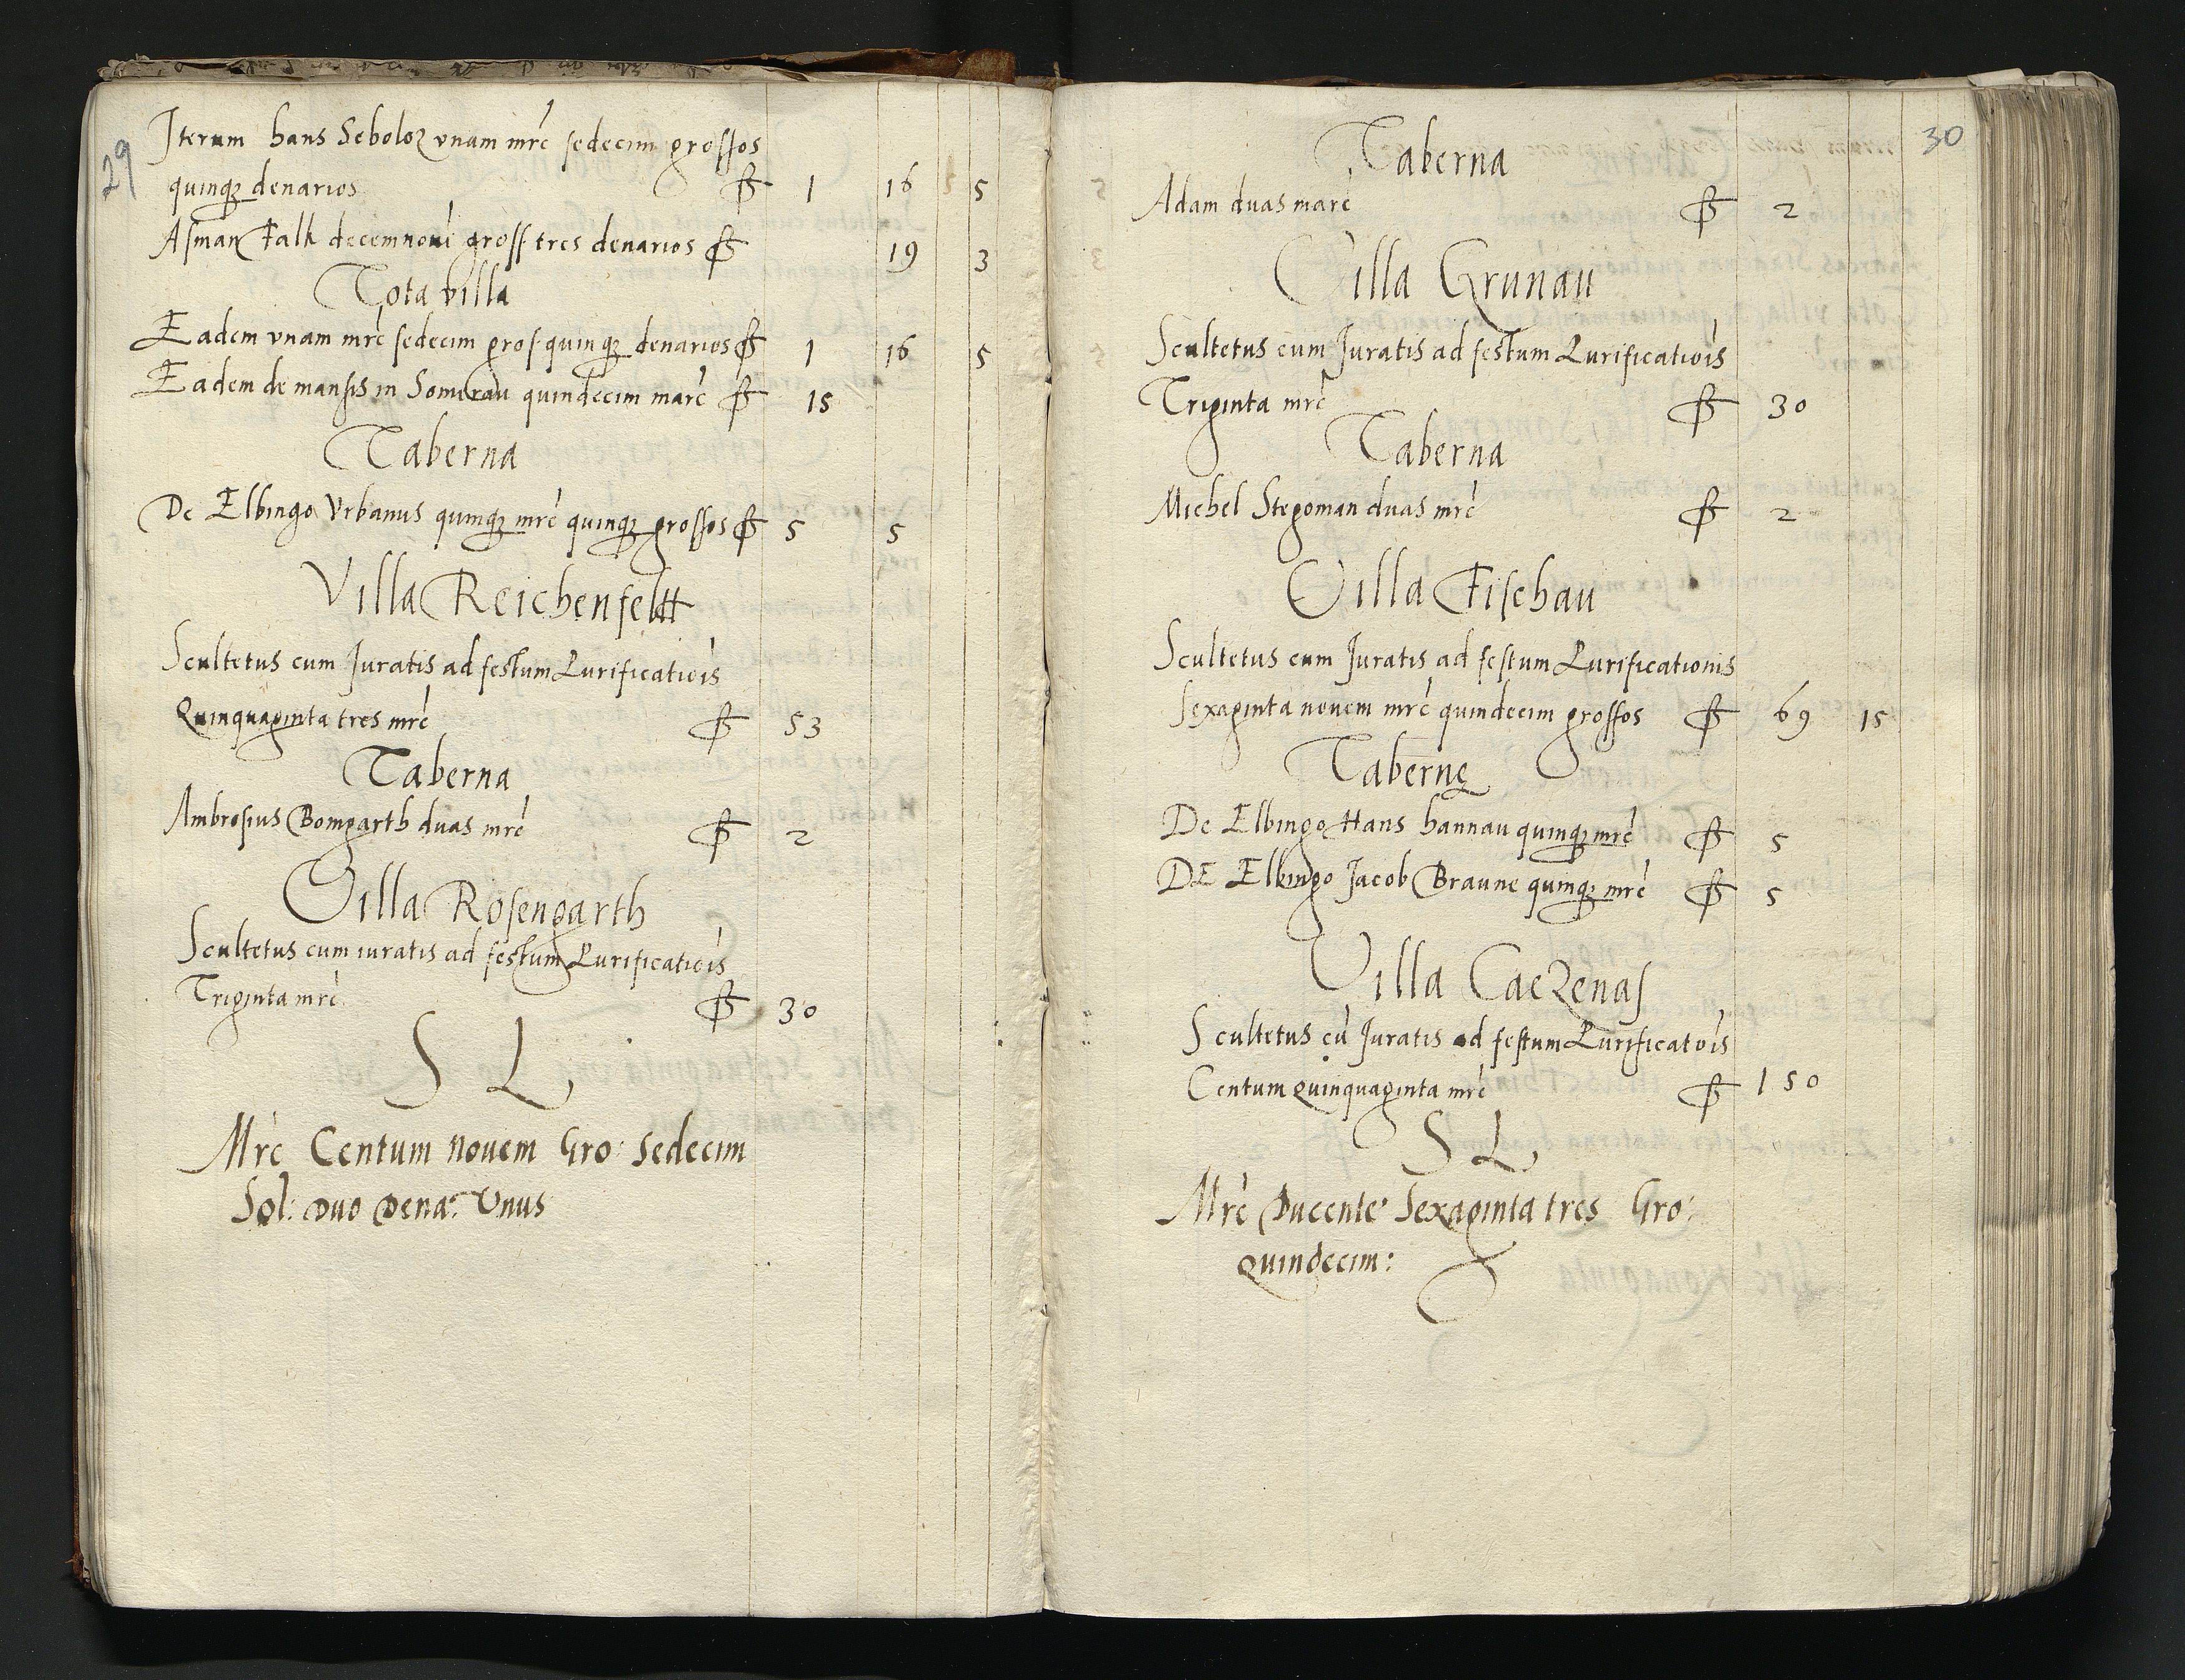 29
Iterum hans Scholcz vnam mrc sedecim grossos
quinqȝ denarios 1 16 5
Asman Falk decemnoui gross tres denarios 19 3
Tota villa
Eadem vnam mrc sedecim gros quinqȝ denarios 1 16 5
Eadem de mansis in Somerau quindecim marc 15
Taberna
De Elbingo Vrbanus quinqȝ mrc quinqȝ grossos 5 5
Villa Reichenfeltt
Scultetus cum Juratis ad festum Purificatiois
Quinquaginta tres mrc 53
Taberna
Ambrosius Bomgarth duas mrc 2
Villa Rosengarth
Scultetus cum iuratis ad festum Purificatiois
Triginta mrc 30
S L
Mrc Centum Nouem Gro: Sedecim
Sol: Duo Dena: Vnus
30
Taberna
Adam duas marc 2
Villa Grunau
Scultetus cum Juratis ad festum Purificatiois
Triginta mrc 30
Taberna
Michel Stegoman duas mrc 2
Villa Fischau
Scultetus cum Juratis ad festum Purificationis
Sexaginta novem mrc quindecim grossos 69 15
Tabernę
De Elbingo Hans hannau quinqȝ mrc 5
DE Elbingo Jacob Braune quinqȝ mrc 5
Villa Caczenas
Scultetus cu Juratis ad festum Purificatois
Centum Quinquaginta mrc 150
S L
Mrc Ducente Sexaginta tres Gro:
Quindecim: